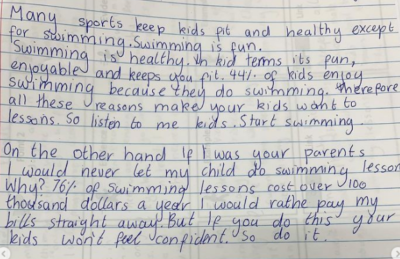 Many sports keep kids fit and healthy except
for swimming. Swimming is fun.
Swimming is healthy. In kid terms its fun,
enjoyable and keeps you fit. 44% of kids enjoy
swimming because they do swimming. Therefore
all these reasons make your kids want to
lessons. So listen to me kids. Start swimming.
On the other hand If I was your parents
I would never let my child do swimming lesson
Why? 76% of swimming lessons cost over 100
thousand dollars a year I would rathe pay my
bills straight away. But If you do this your
kids won't feel confident. So do it.